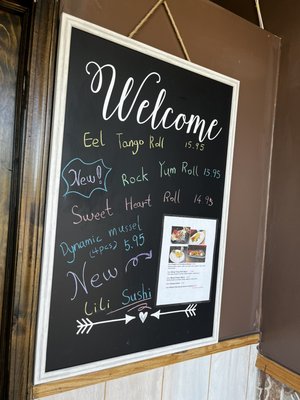 Welcome
Eel Tango Roll 15.95
New! Rock Yum Roll 13.95
Sweet Heart Roll 14.95
Dynamic mussel
(4pcs) 5.95
New
Lili Sushi